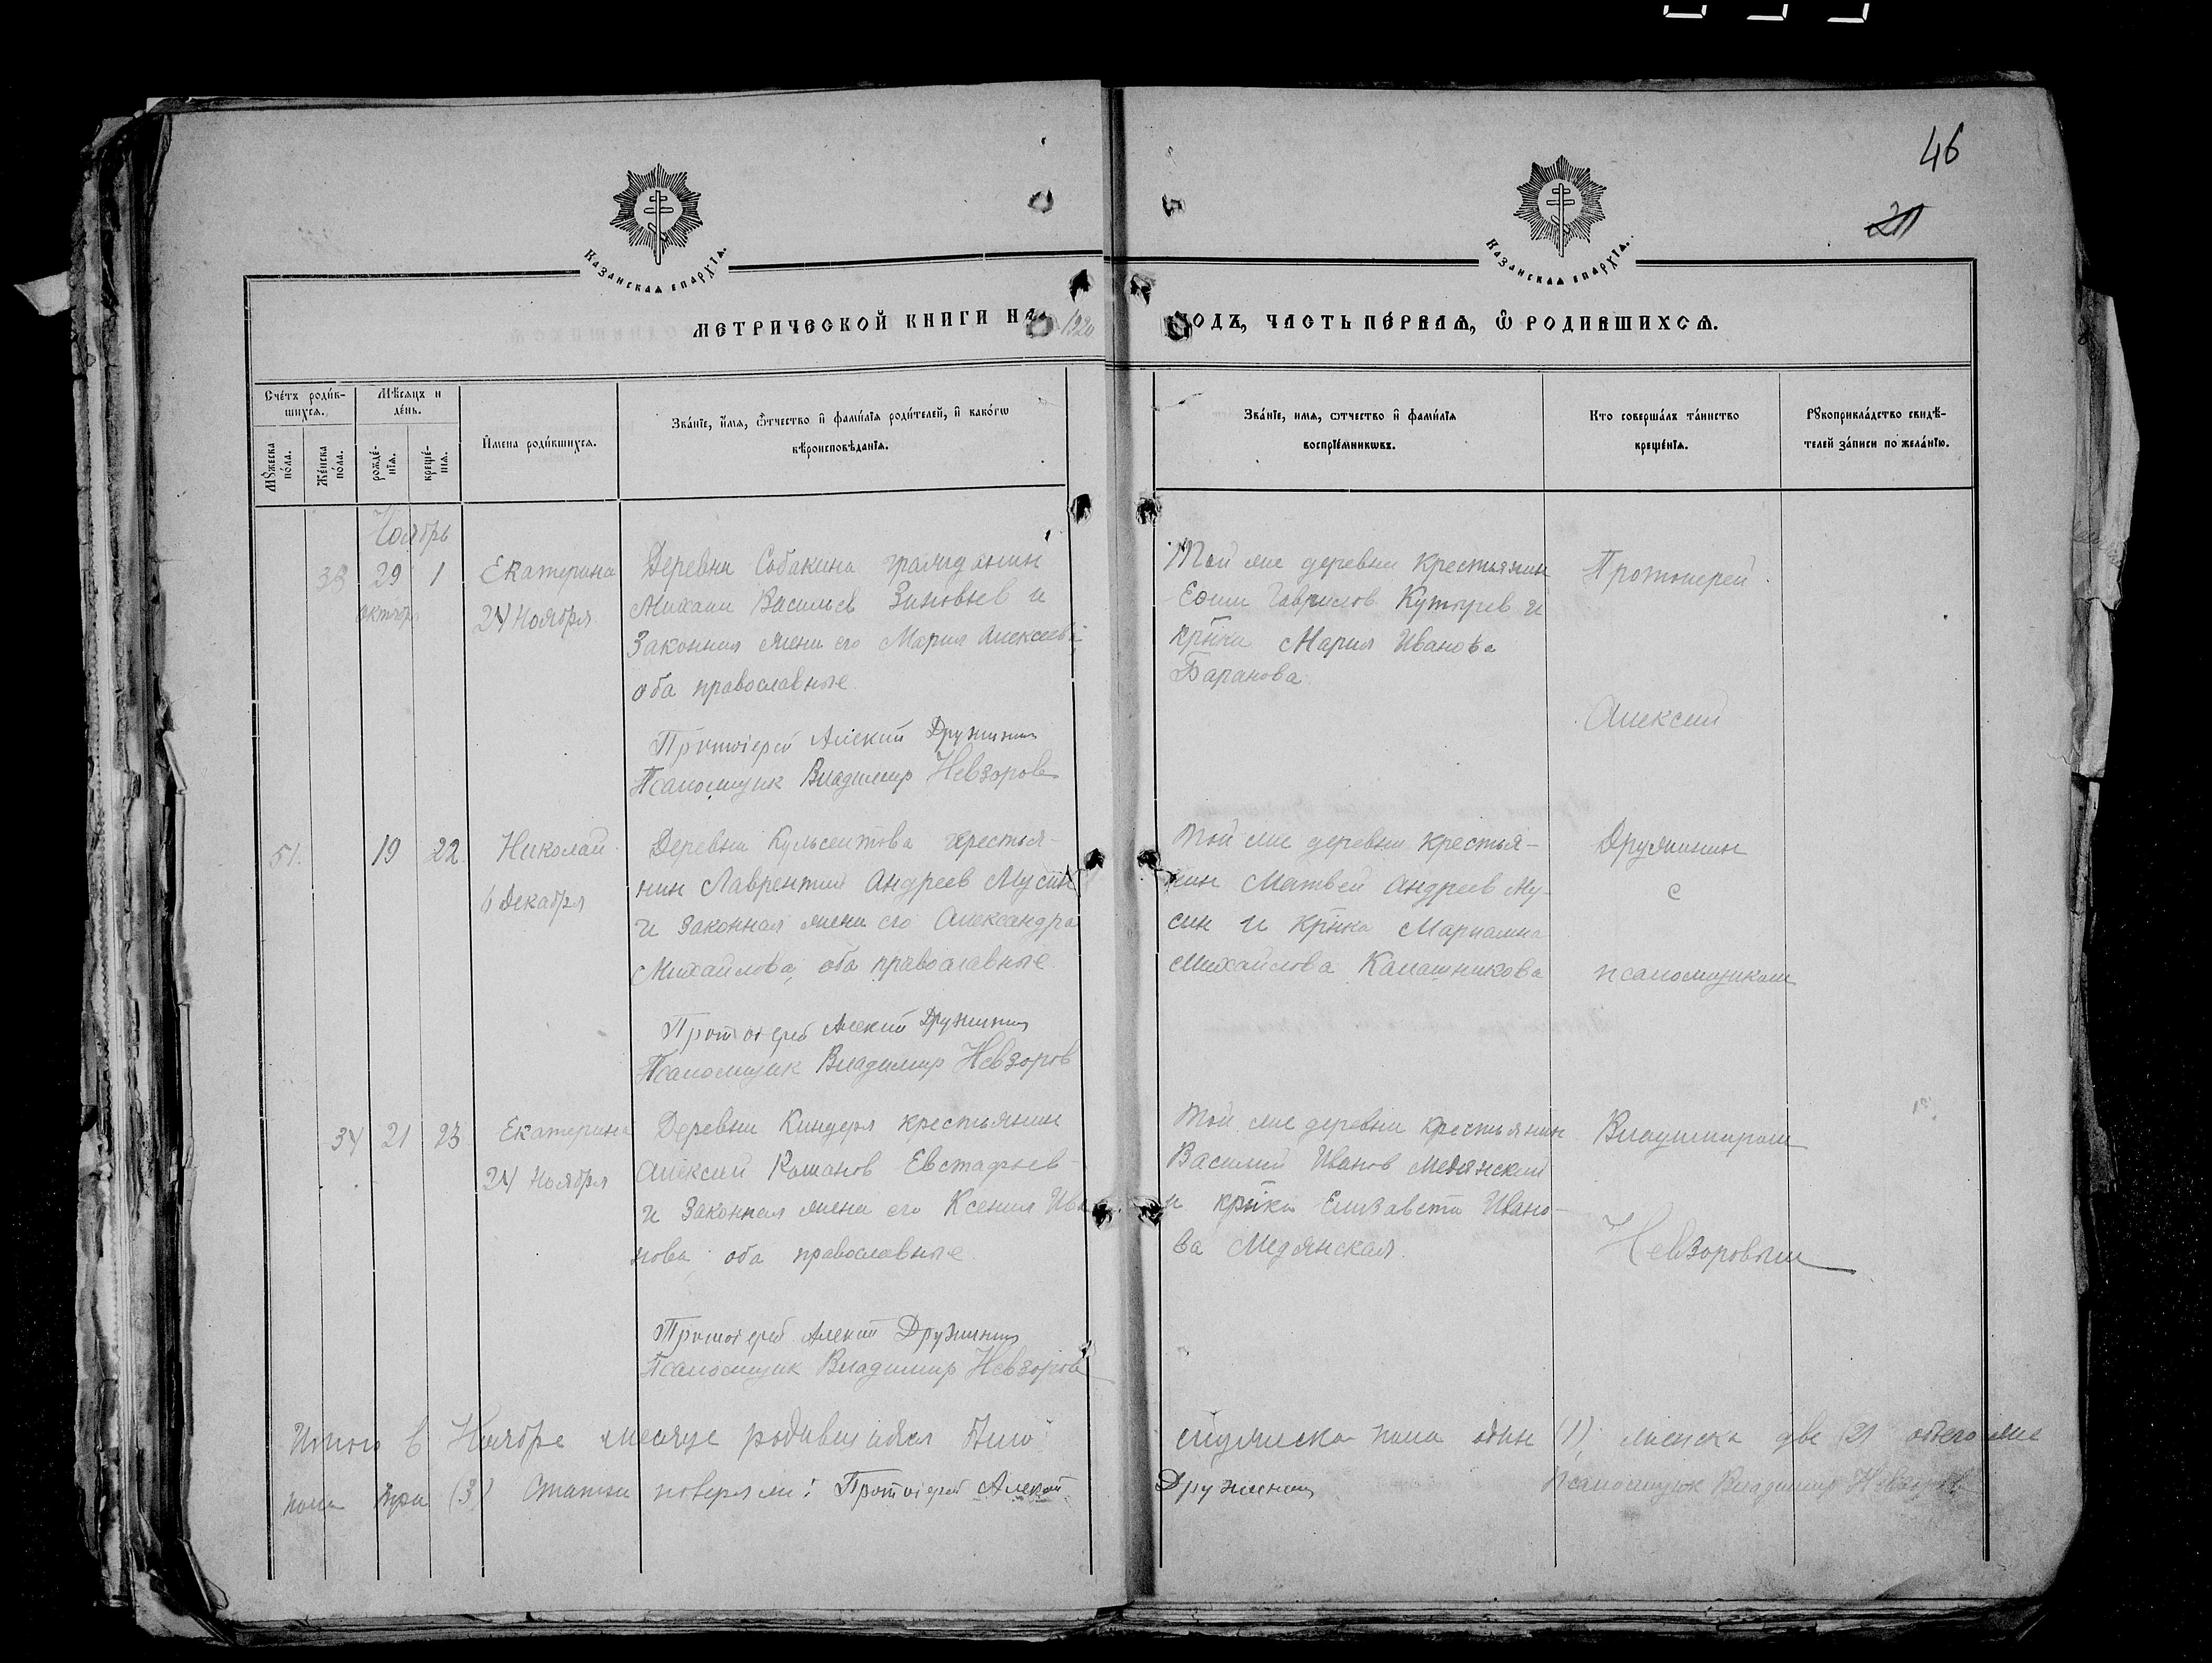 46
211
Казанская епархїа.
Казанская епархїа.
МЕТРИЧЕСКОЙ КНИГИ НА 1920 ГОДЪ, ЧАСТЬ ПЕРВАЯ, Ѿ РОДИВШИХСЯ.
Счéтъ роди́вшихся.
Мѣсяцъ и дéнь.
Мꙋ́жеска по́ла.
Же́нска по́ла.
рожде́нїя.
креще́нїя.
И҆мена роди́вшихся.
Зва́нїе, и҆́мя, ѻ҆́тчество и҆ фами́лїя роди́телей, и҆ како́гѡ вѣроисповѣ́данїя.
Зва́нїе, имя, ѻтчество и҆ фами́лїя воспрїе́мникѡвъ.
Кто соверша́лъ та́инство креще́нїя.
Рꙋкоприкла́дство свидѣ́телей за́писи по жела́нїю.
Ноябрь
33 29 1 Екатерина
октябр. 24 Ноября
Деревни Собакина гражданин
Михаил Васильев Зиновьев и
Законная жена его Мария Алексеева
оба православные
Протоіерей Алексий Дружинин
Псаломщик Владимир Невзоров
Той же деревни крестьянин
Ефим Гаврилов Кутырев и
кр-нка Мария Иванова
Баранова
Протоиерей
Алексий
51. 19 22 Николай
6 Декабря
Деревни Кульсеитова крестья-
нин Лаврентий Андреев Мусин
и законная жена его Александра
Михайлова, оба православные
Протоіерей Алексий Дружинин
Псаломщик Владимир Невзоров
Той же деревни крестья-
нин Матвей Андреев Му-
син и кр-нка Мариамна
Михайлова Калашникова
Дружинин
с
псаломщиком
34 21 23 Екатерина
24 Ноября
Деревни Киндеря крестьянин
Алексий Романов Евстафьев
и Законная жена его Ксения Ива
нова, оба православные
Протоіерей Алексий Дружинин
Псаломщик Владимир Невзоров
Той же деревни крестьянин
Василий Иванов Медянский
и кр-нка Елизавета Ивано-
ва Медянская.
Владимиром
Невзоровым
Итого в Ноябре месяце родившихся было мужеска пола один (1), женска две (2) обоего же
пола три (3) Статьи поверяли: Протоіерей Алексий Дружинин Псаломщик Владимир Невзоров